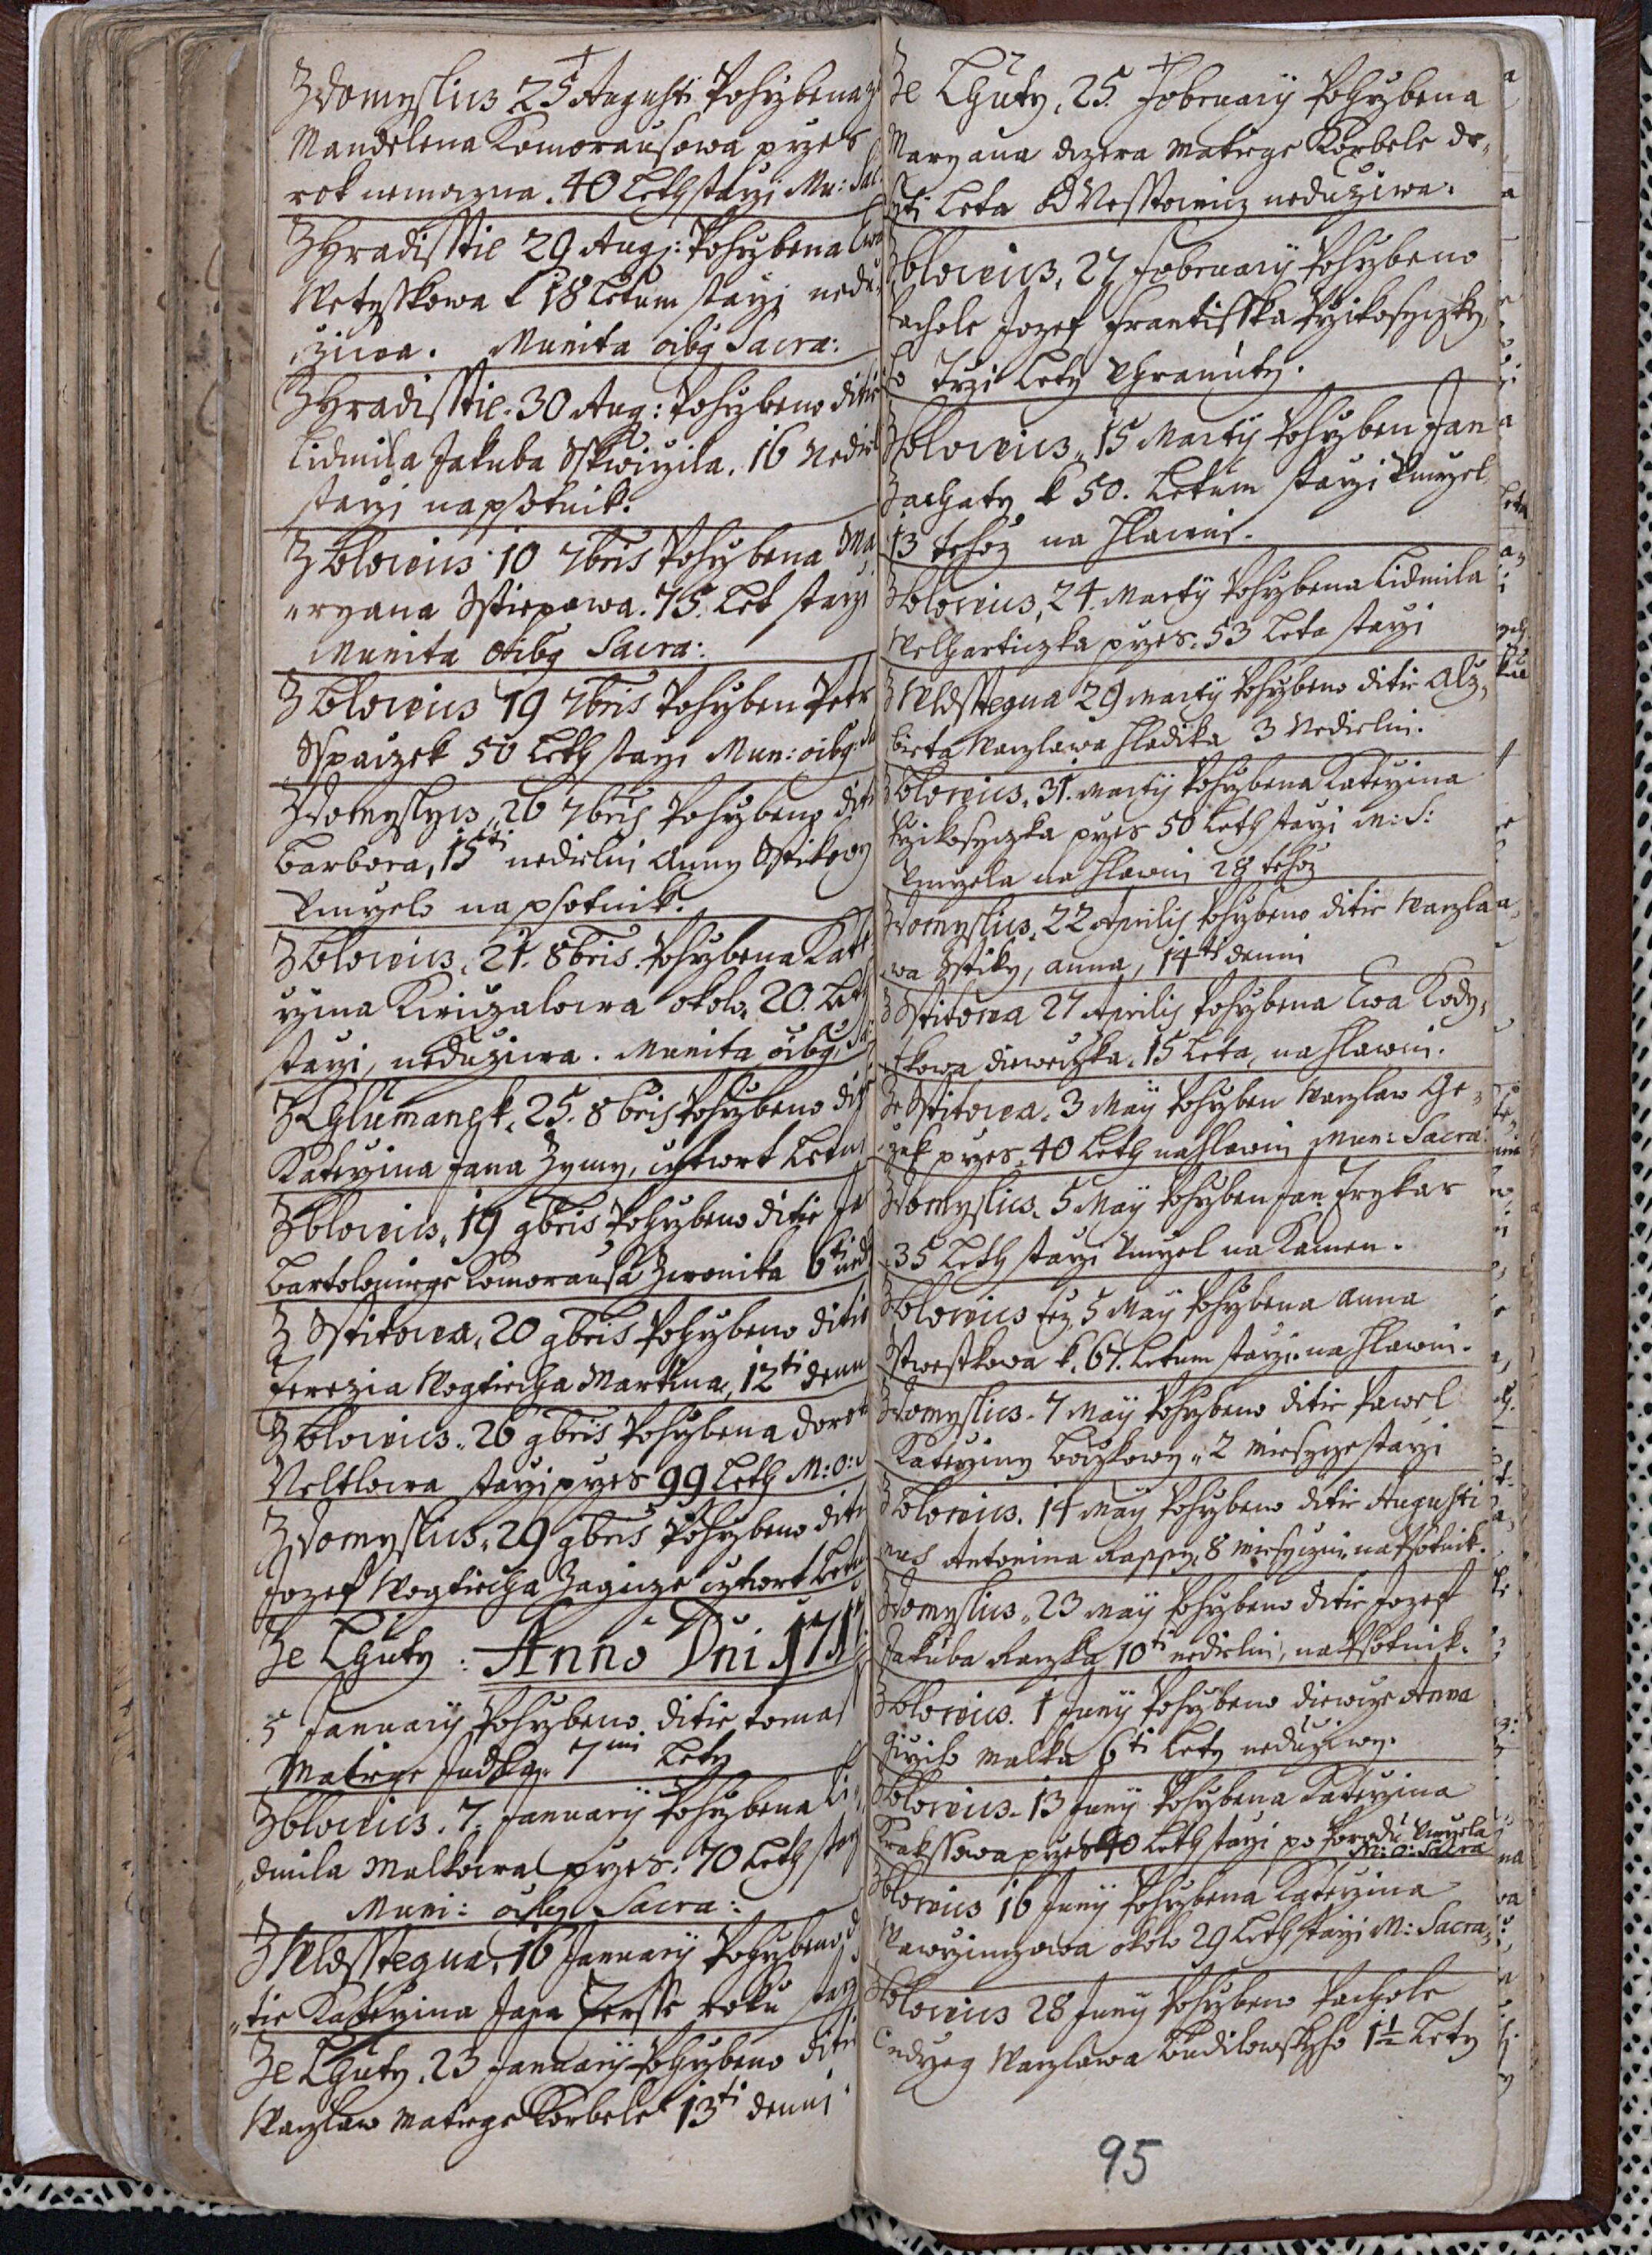 Zdomyslicz 25 Augusti Pohrzbena
Mandelena Komorausowa przes
rok nemoczna. 40 Leth starzi Mu: Sac
Z Hradisstie 29 Aug: Pohrzbena Ewa
Netysskowa k 18 Letum starzi nedu,
ziwa. Munita oibg Sacra:
Z Hradisstie. 30 Aug: Pohrzbeno ditie
Lidmila Jakuba Skwirzila. 16 Nediel
starzi na psotnik.
Z blowicz 10 7bris Pohrzbena Ma
ryana Sstiepowa. 75. Let starzi
Munita oibg Sacra:
Z blowicz 19 7bris Pohrzben Petr
Sspaczek 50 Leth starzi Mun: oibg: Sa
Zdomyslycz, 26 7bris Pohrzbeno diti
Barbora, 15ti nedielni Anny Sstikowy
Umrzelo na psotnik.
Z blowicz, 21. 8bris. Pohrzbena Kate
rzina okolo 20. Leth
starzi, neduziwa. Munita oibg, Sa:
Z Chlumanek, 25. 8bris Pohrzbeno dit
Katerzina Jana Zymy, cztwrt Letni
Z blowicz, 19 9bris Pohrzbeno ditie Ja
Bartolomiege Komorausa Zwonika 6ti ned
Z Sstitowa, 20 9bris Pohrzbeno ditie
Terezia Wogtiecha Martina, 12ti denn
Z blowicz. 26 9bris Pohrzbena Dorot
Neltlowa starzi przes 99 Leth M: O:
Zdomyslicz, 29 9bris Pohrzbeno diti
Jozef Wogtiecha Zagicze cztwrt Letni
Ze Lhuty: Anno Dni 171
5 January Pohrzbeno ditie Tomas
Matiege Judla 7mi Lety
Z blowicz. 7. January Pohrzbena Li,
dmila Malkowa przes. 70 Leth starzi
Muni: oibg Sacra:
Z Wldsstegna, 16 January Pohrzbeno d
tie Katerzina Jana roku starzi
Ze Lhuty. 23 January Pohrzbeno diti
Waczlaw Matiege Korbele 13ti denni
Ze Lhuty, 25. February Pohrzbena
Maryana dczera Matiege Korbele de,
sti Leta Od Nesstowicz neduziwa.
Z blowicz, 27 February Pohrzbeno
Pachole Jozef Frantisska Przikosyczky,
ho Trzi Lety Uhranuty.
Z blowicz, 15 Marty Pohrzben Jan
Zachaty k 50. Letum starzi Umrzel
13 tehoz na Hlawni.
Z blowicz, 24. Marty Pohrzbena Lidmila
Welharticzka przes. 53 Leta starzi
Z Wldsstegna 29 Marty Pohrzbeno ditie Alz,
bieta Waczlawa Hladika 3 Nedielni.
Z blowicz, 31. Marty Pohrzbena Katerzina
Przikosyczka przes 50 Leth starzi M: S:
Umrzela na Hlawni 28 tehoz
Zdomyslicz, 22 Aprilis Pohrzbeno ditie Waczla
wa Sstiky, Anna, 14ti denni
Z Sstitowa 27 Aprilis Pohrzbena Ewa Kody,
tkowa diewczka. 15 Leta, na Hlawni.
Ze Sstitowa. 3 Maÿ Pohrzben Waczlaw Ge,
zek przes, 40 Leth na Hlawni Mun: Sacra:
Zdomyslicz. 5 Maÿ Pohrzben Jan Trykar
35 Leth starzi Umrzel na Kamen.
Z blowicz tez 5 Maÿ Pohrzbena Anna
Sswestkowa k. 67. Letum starzi. na Hlawni.
Zdomyslicz. 7 Maÿ Pohrzbeno ditie Pawel
Katerziny Boczkowy, 2 miesycze starzi
Z blowicz. 14 Maÿ Pohrzbeno ditie Augusti
nus Antonina Rappy, 8 miesyczni na Psotnik.
Zdomyslicz, 23 Maÿ Pohrzbeno ditie Jozef
Jakuba Raczka 10ti nedielni, na Psotnik.
Z blowicz. 1 Juny Pohrzbeno diewcze Anna
Girziho Malka 6ti Lety neduziwy.
Z blowicz. 13 Juny Pohrzbena Katerzina
Krakssowa przes 40 Leth starzi po Porodu Umrzela
M: O: Sacra
Z blowicz 16 Juny Pohrzbena Katerzina
Wawrzinczowa okolo 29 Leth starzi M: Sacra,
Z blowicz 28 Juny Pohrzbeno Pachole
Ondrzeg Waczlawa Budilowskyho 1½ Lety
95